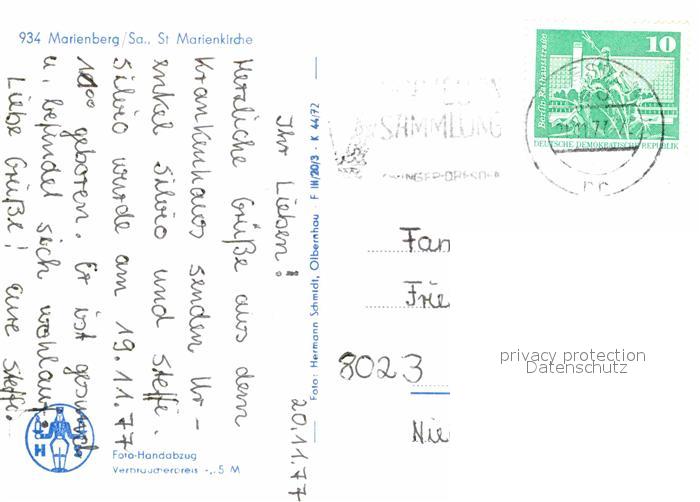 934 Marienberg/Sa., St Marienkirche
20.11.77
Ihr Lieben!
Herzliche Grüße aus dem
Krankenhaus senden Ur-
enkel Silvio und Steffi.
Silvio wurde am 19.11.77
geboren. Er ist gesund
u. befindet sich wohlauf.
Liebe Grüße! eure Steffi.
Foto: Hermann Schmidt, Olbernhau · F III/20/3 · K 44/72
H
Foto-Handabzug
Verbraucherpreis -,.5 M
SAMMLUNG
10
Berlin-Rathausstraße
DEUTSCHE DEMOKRATISCHE REPUBLIK
Fam
Frie
8023
Nie
privacy protection
Datenschutz